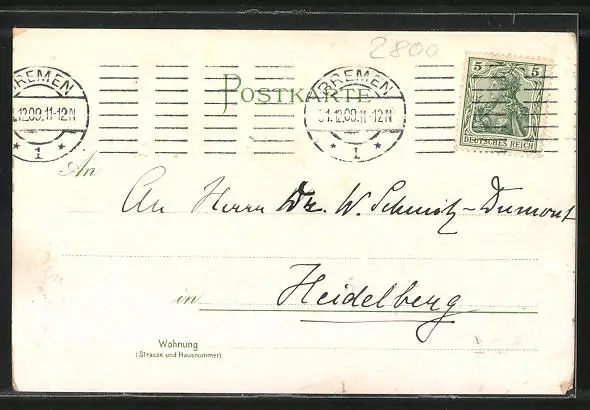 2800
BREMEN
BREMEN
5 5
POSTKARTE
.12.09.11-12N
31.12.09.11-12N
* 1 *
* 1 *
DEUTSCHES REICH
An
An Herrn Dr. W. Schmitz-Dumont
in Heidelberg
Wohnung
(Strasse und Hausnummer)